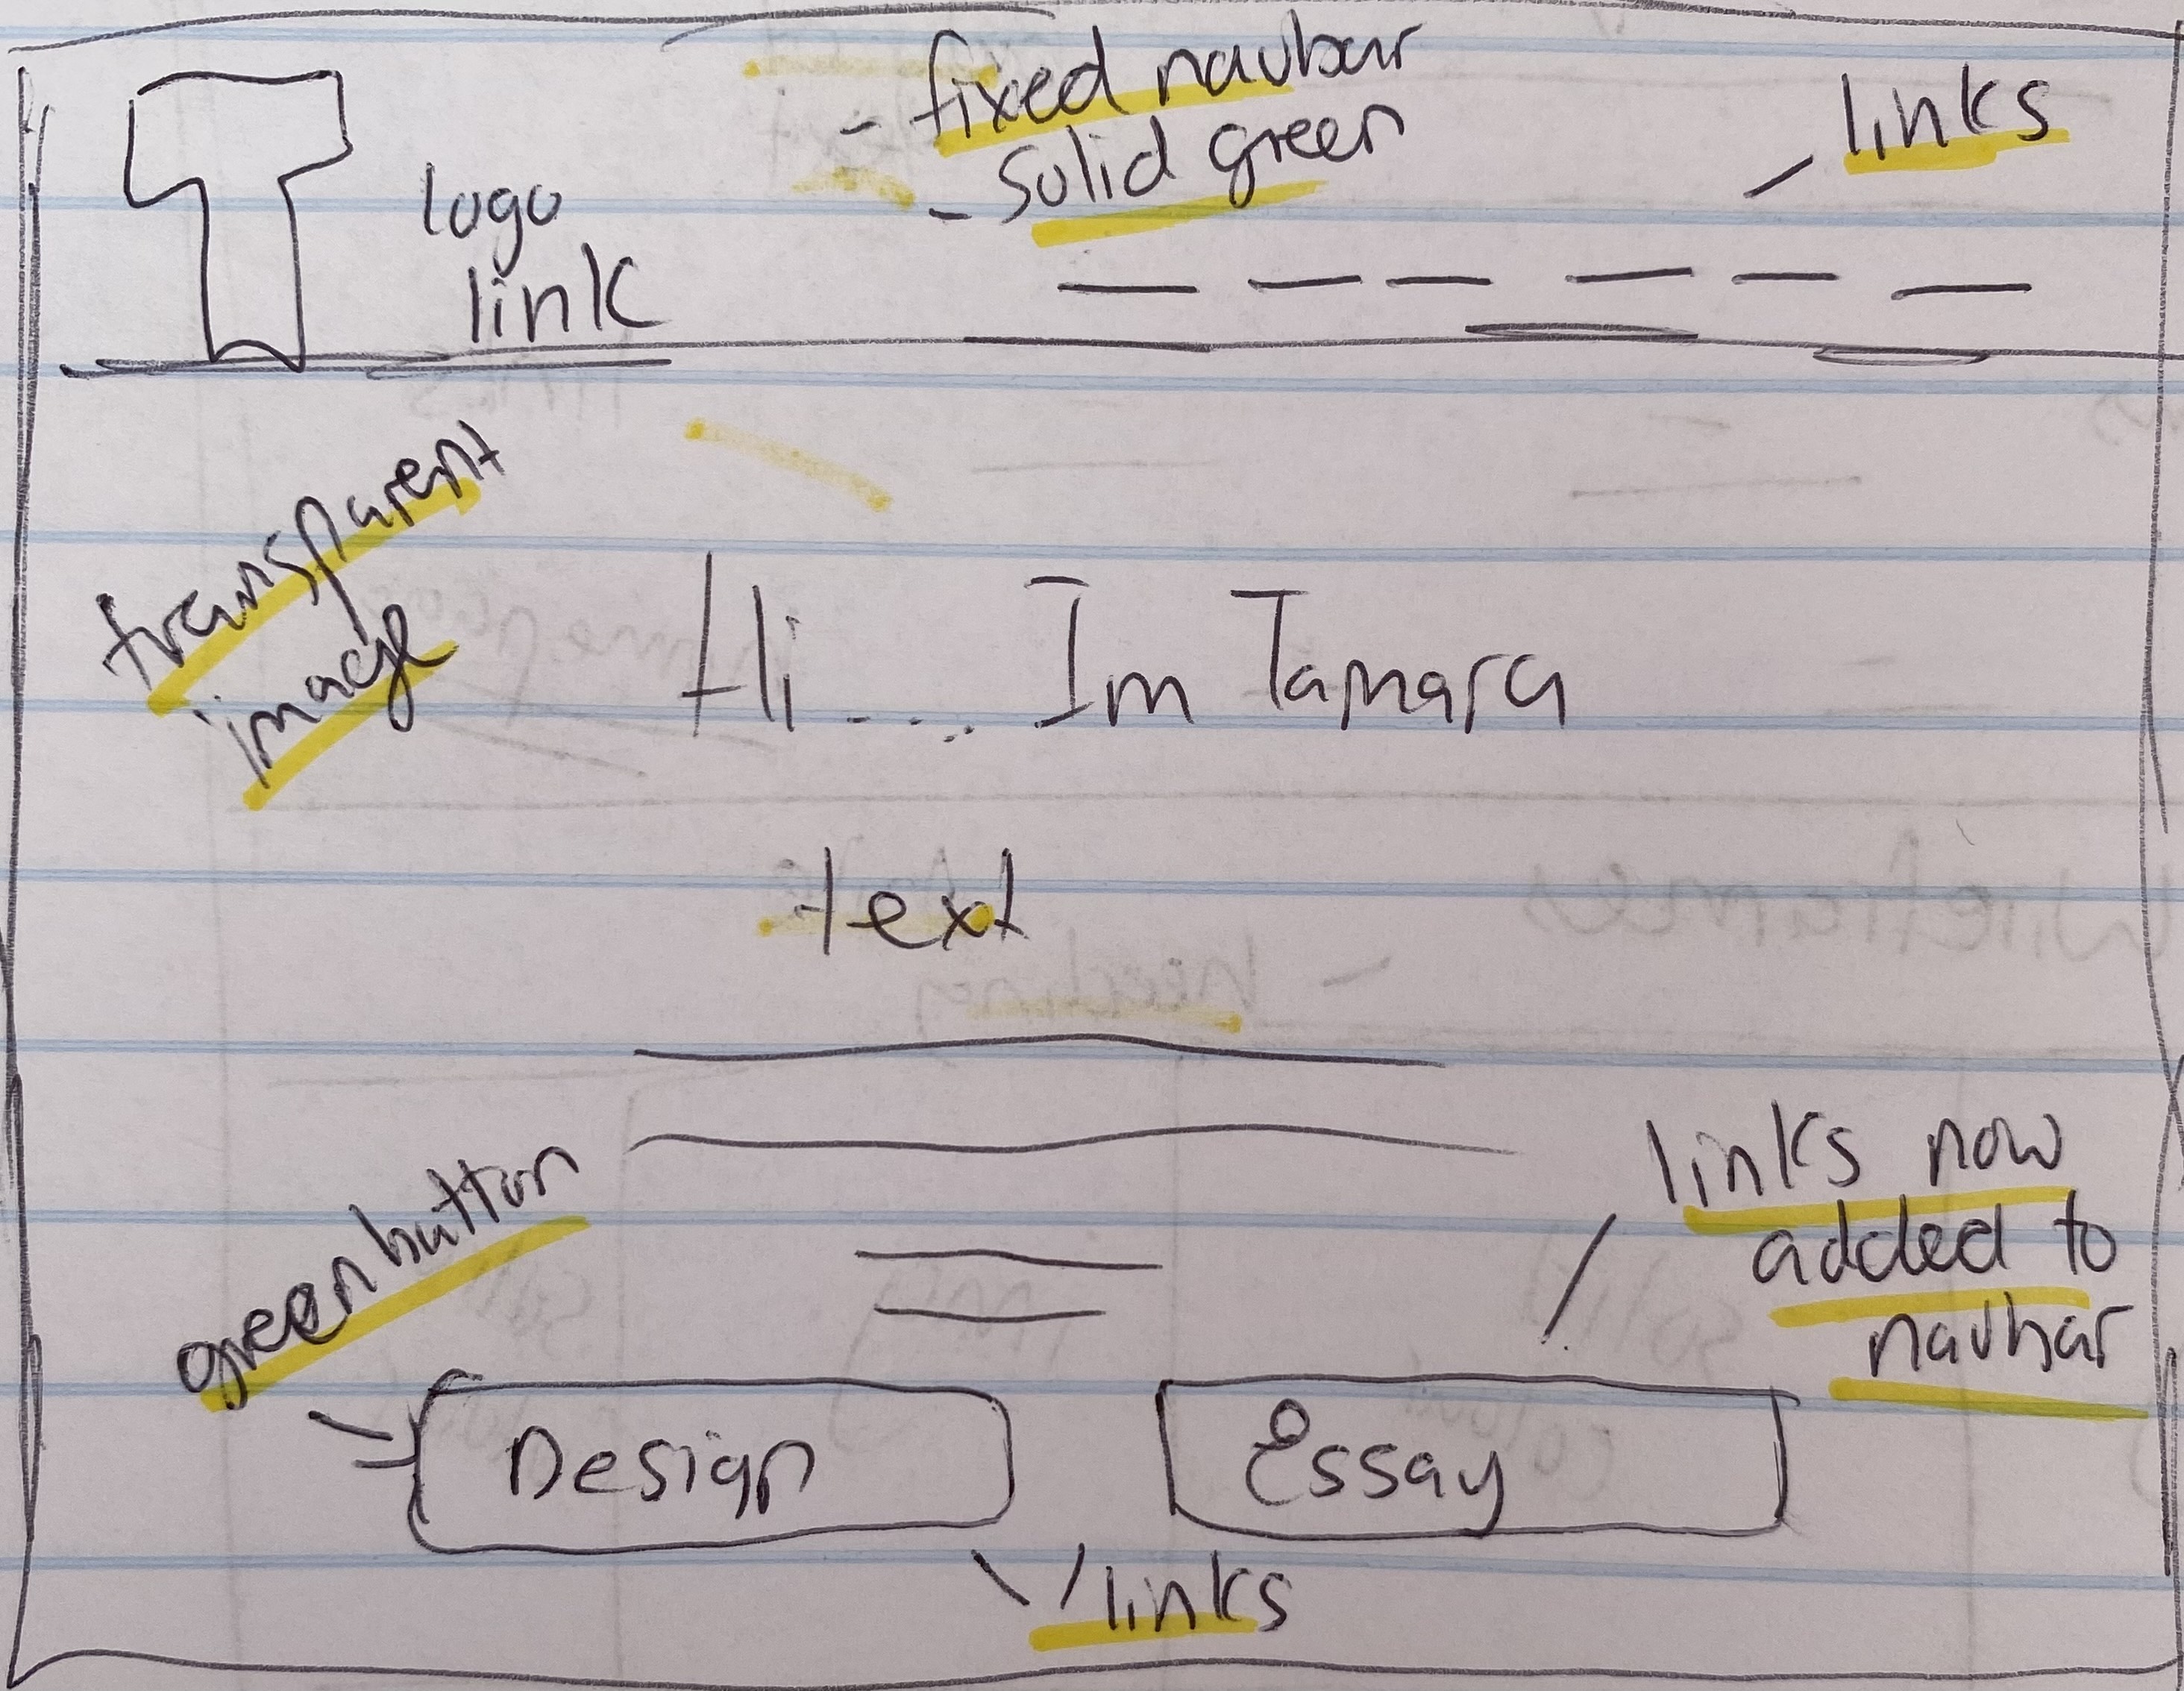 - fixed navbar
- solid green
links
logo
link
transparent
image
Hi.... Im Tamara
text
green button
links now
added to
navbar
Design
Essay
links